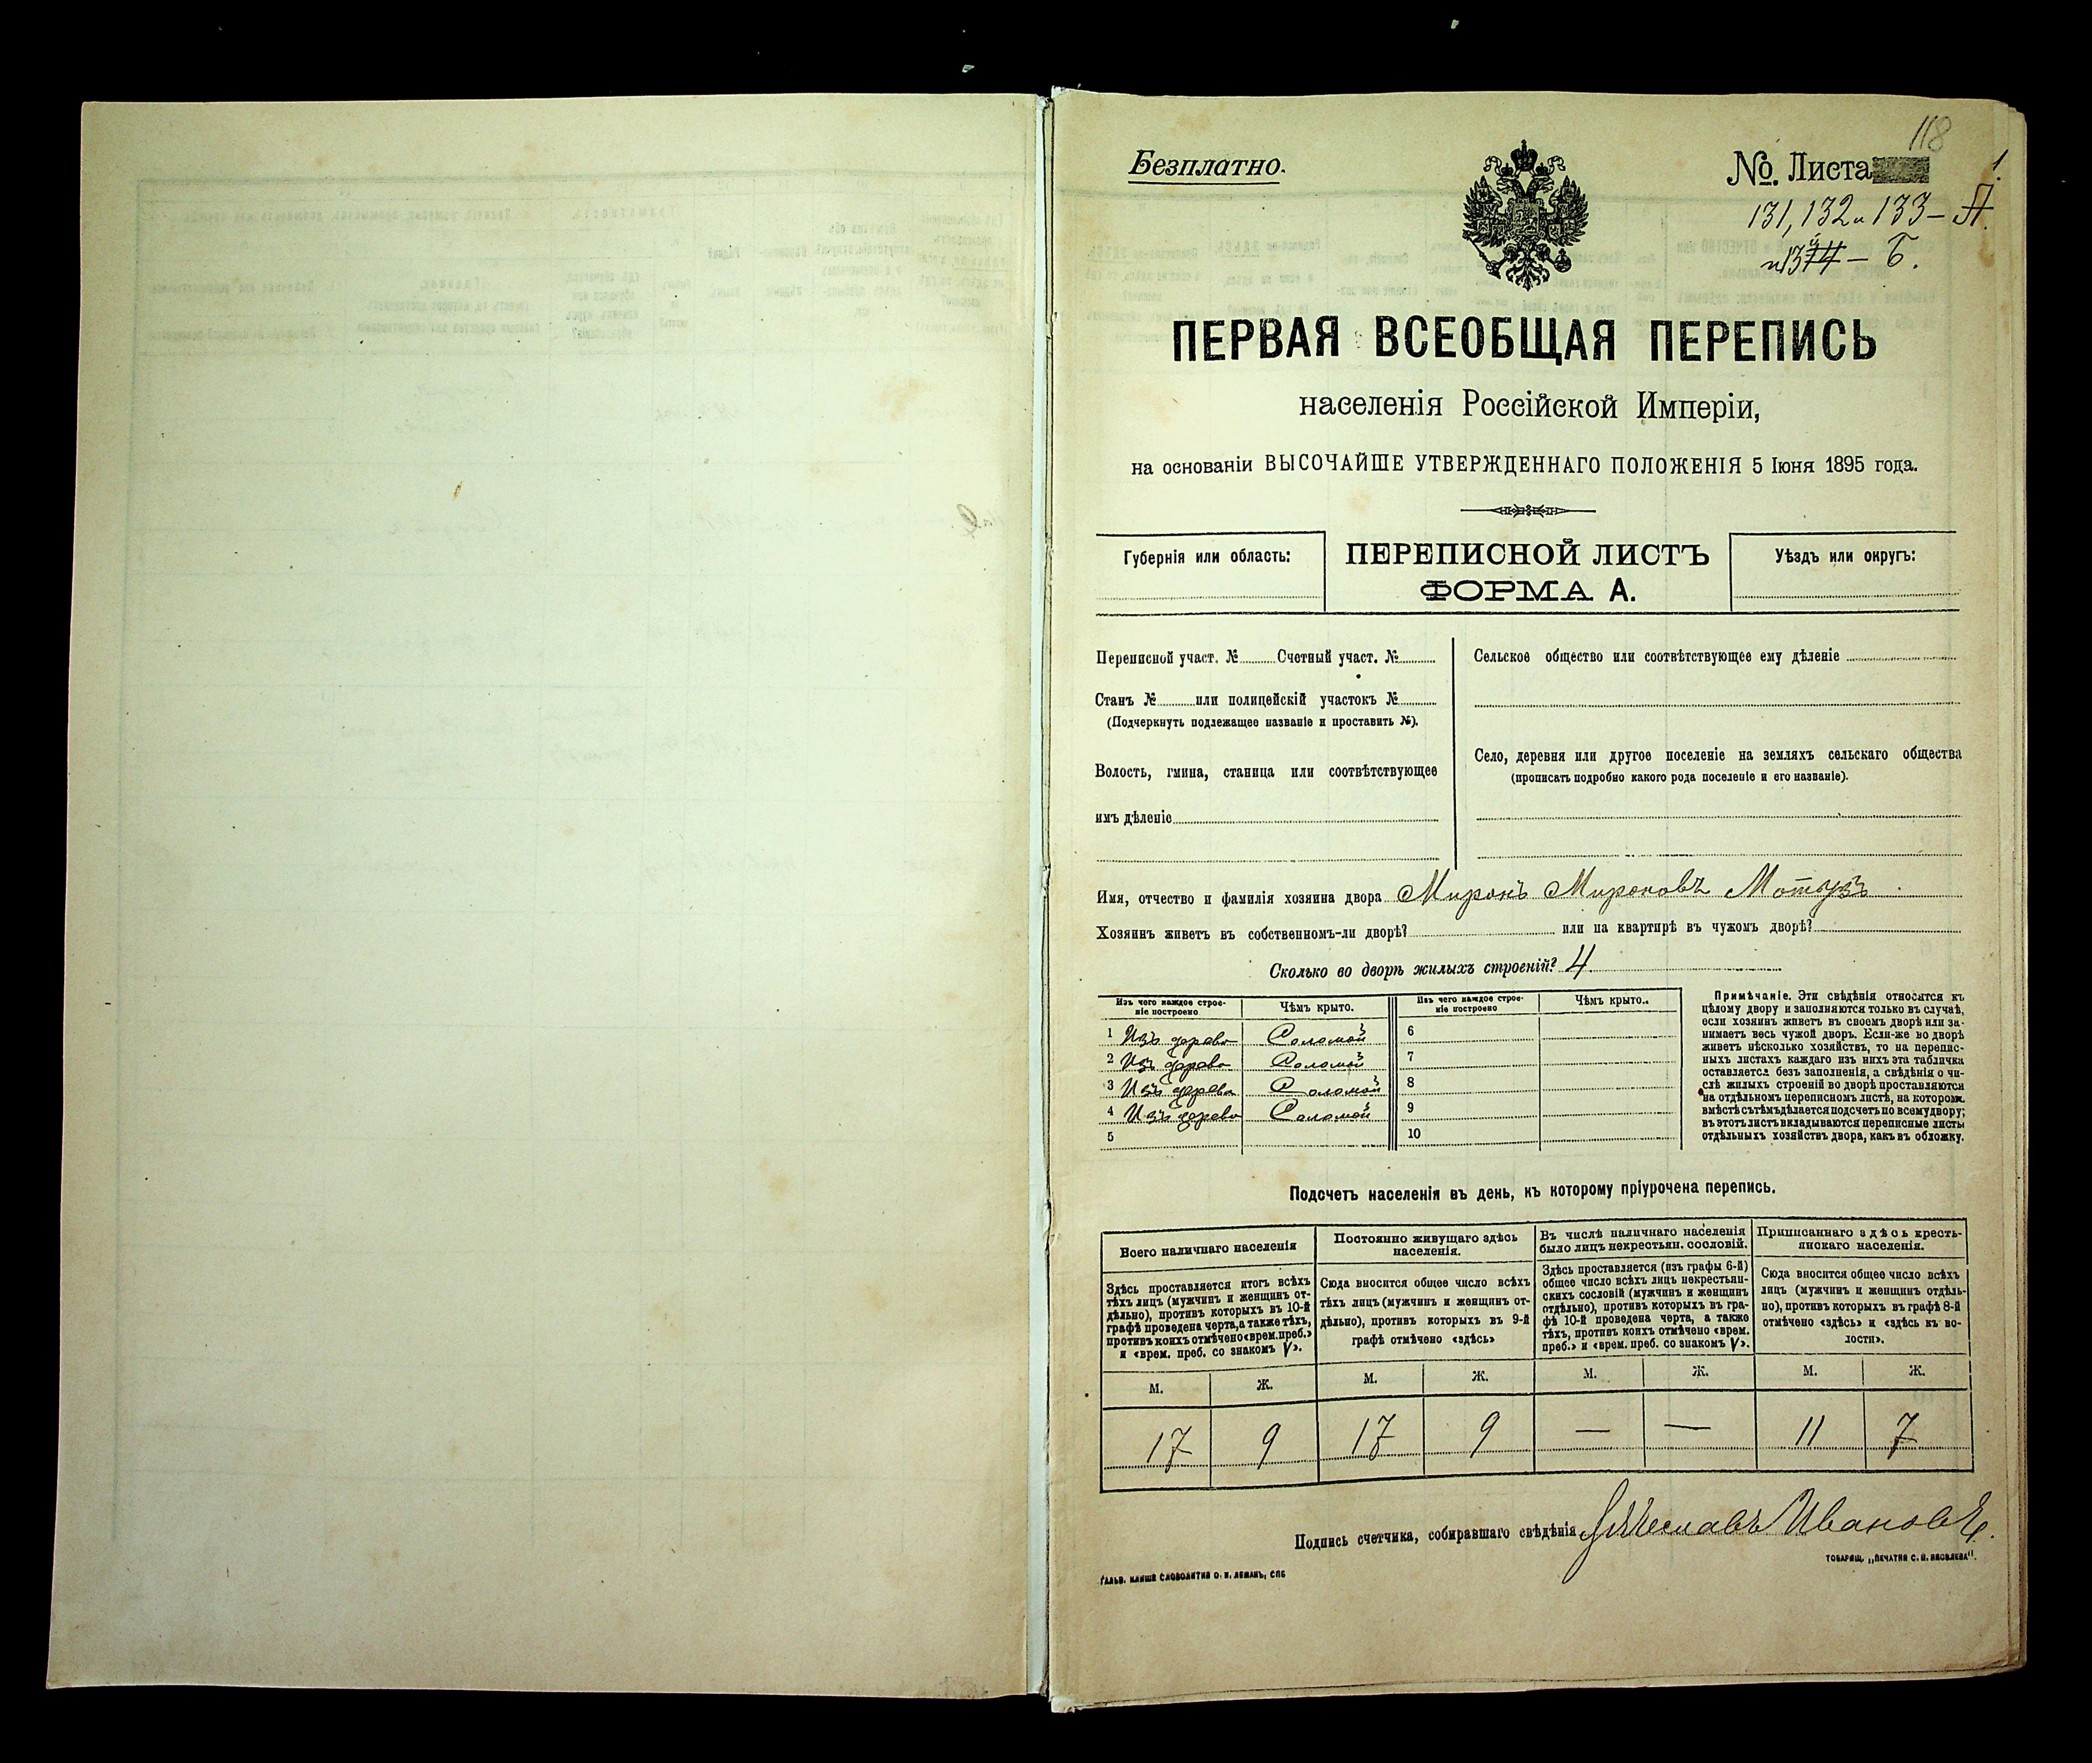 118
Безплатно.
№. Листа
1.
131, 132 и 133 – А.
– Б.
ПЕРВАЯ ВСЕОБЩАЯ ПЕРЕПИСЬ
населенія Россійской Имперіи,
на основаніи ВЫСОЧАЙШЕ УТВЕРЖДЕННАГО ПОЛОЖЕНІЯ 5 Іюня 1895 года.
Губернія или область:
ПЕРЕПИСНОЙ ЛИСТЪ
ФОРМА А.
Уѣздъ или округъ:
Переписной участ. № Счетный участ. №
Станъ № или полицейскій участокъ №
(Подчеркнуть подлежащее названіе и проставить №).
Волость, гмина, станица или соотвѣтствующее
имъ дѣленіе
Сельское общество или соотвѣтствующее ему дѣленіе
Село, деревня или другое поселеніе на земляхъ сельскаго общества
(прописать подробно какого рода поселеніе и его названіе).
Имя, отчество и фамилія хозяина двора Миронъ Мироновъ Мотузъ
Хозяинъ живетъ въ собственномъ-ли дворѣ? или на квартирѣ въ чужомъ дворѣ?
Сколько во дворѣ жилыхъ строеній? 4
Изъ чего каждое строе-
ніе построено
Чѣмъ крыто.
1 Изъ дерева Соломой
2 Изъ дерева Соломой
3 Изъ дерева Соломой
4 Изъ дерева Соломой
5
Изъ чего каждое строе-
ніе построено
Чѣмъ крыто.
6
7
8
9
10
Примѣчаніе. Эти свѣдѣнія относятся къ
цѣлому двору и заполняются только въ случаѣ,
если хозяинъ живетъ въ своемъ дворѣ или за-
нимаетъ весь чужой дворъ. Если-же во дворѣ
живетъ нѣсколько хозяйствъ, то на перепис-
ныхъ листахъ каждаго изъ нихъ эта табличка
оставляется безъ заполненія, а свѣдѣнія о чи-
слѣ жилыхъ строеній во дворѣ проставляются
на отдѣльномъ переписномъ листѣ, на которомъ
вмѣстѣ съ тѣмъ дѣлается подсчетъ по всему двору;
въ этотъ листъ вкладываются переписные листы
отдѣльныхъ хозяйствъ двора, какъ въ обложку.
Подсчетъ населенія въ день, къ которому пріурочена перепись.
Всего наличнаго населенія
Здѣсь проставляется итогъ всѣхъ
тѣхъ лицъ (мужчинъ и женщинъ от-
дѣльно), противъ которыхъ въ 10-й
графѣ проведена черта, а также тѣхъ,
противъ коихъ отмѣчено «врем. преб.»
и «врем. преб. со знакомъ V».
Постоянно живущаго здѣсь
населенія.
Сюда вносится общее число всѣхъ
тѣхъ лицъ (мужчинъ и женщинъ от-
дѣльно), противъ которыхъ въ 9-й
графѣ отмѣчено «здѣсь»
Въ числѣ наличнаго населенія
было лицъ некрестьян. сословій.
Здѣсь проставляется (изъ графы 6-й)
общее число всѣхъ лицъ некрестьян-
скихъ сословій (мужчинъ и женщинъ
отдѣльно), противъ которыхъ въ гра-
фѣ 10-й проведена черта, а также
тѣхъ, противъ коихъ отмѣчено «врем.
преб.» и «врем. преб. со знакомъ V».
Приписаннаго здѣсь кресть-
янскаго населенія.
Сюда вносится общее число всѣхъ
лицъ (мужчинъ и женщинъ отдѣль-
но), противъ которыхъ въ графѣ 8-й
отмѣчено «здѣсь» и «здѣсь къ во-
лости».
М. Ж. М. Ж. М. Ж. М. Ж.
17 9 17 9 — — 11 7
Подпись счетчика, собиравшаго свѣдѣнія Ивановъ.
ГАЛЬВ. КЛИШЕ СЛОВОЛИТНИ О. И. ЛЕМАНЪ, СПБ
ТОВАРИЩ. „ПЕЧАТНЯ С. П. ЯКОВЛЕВА".